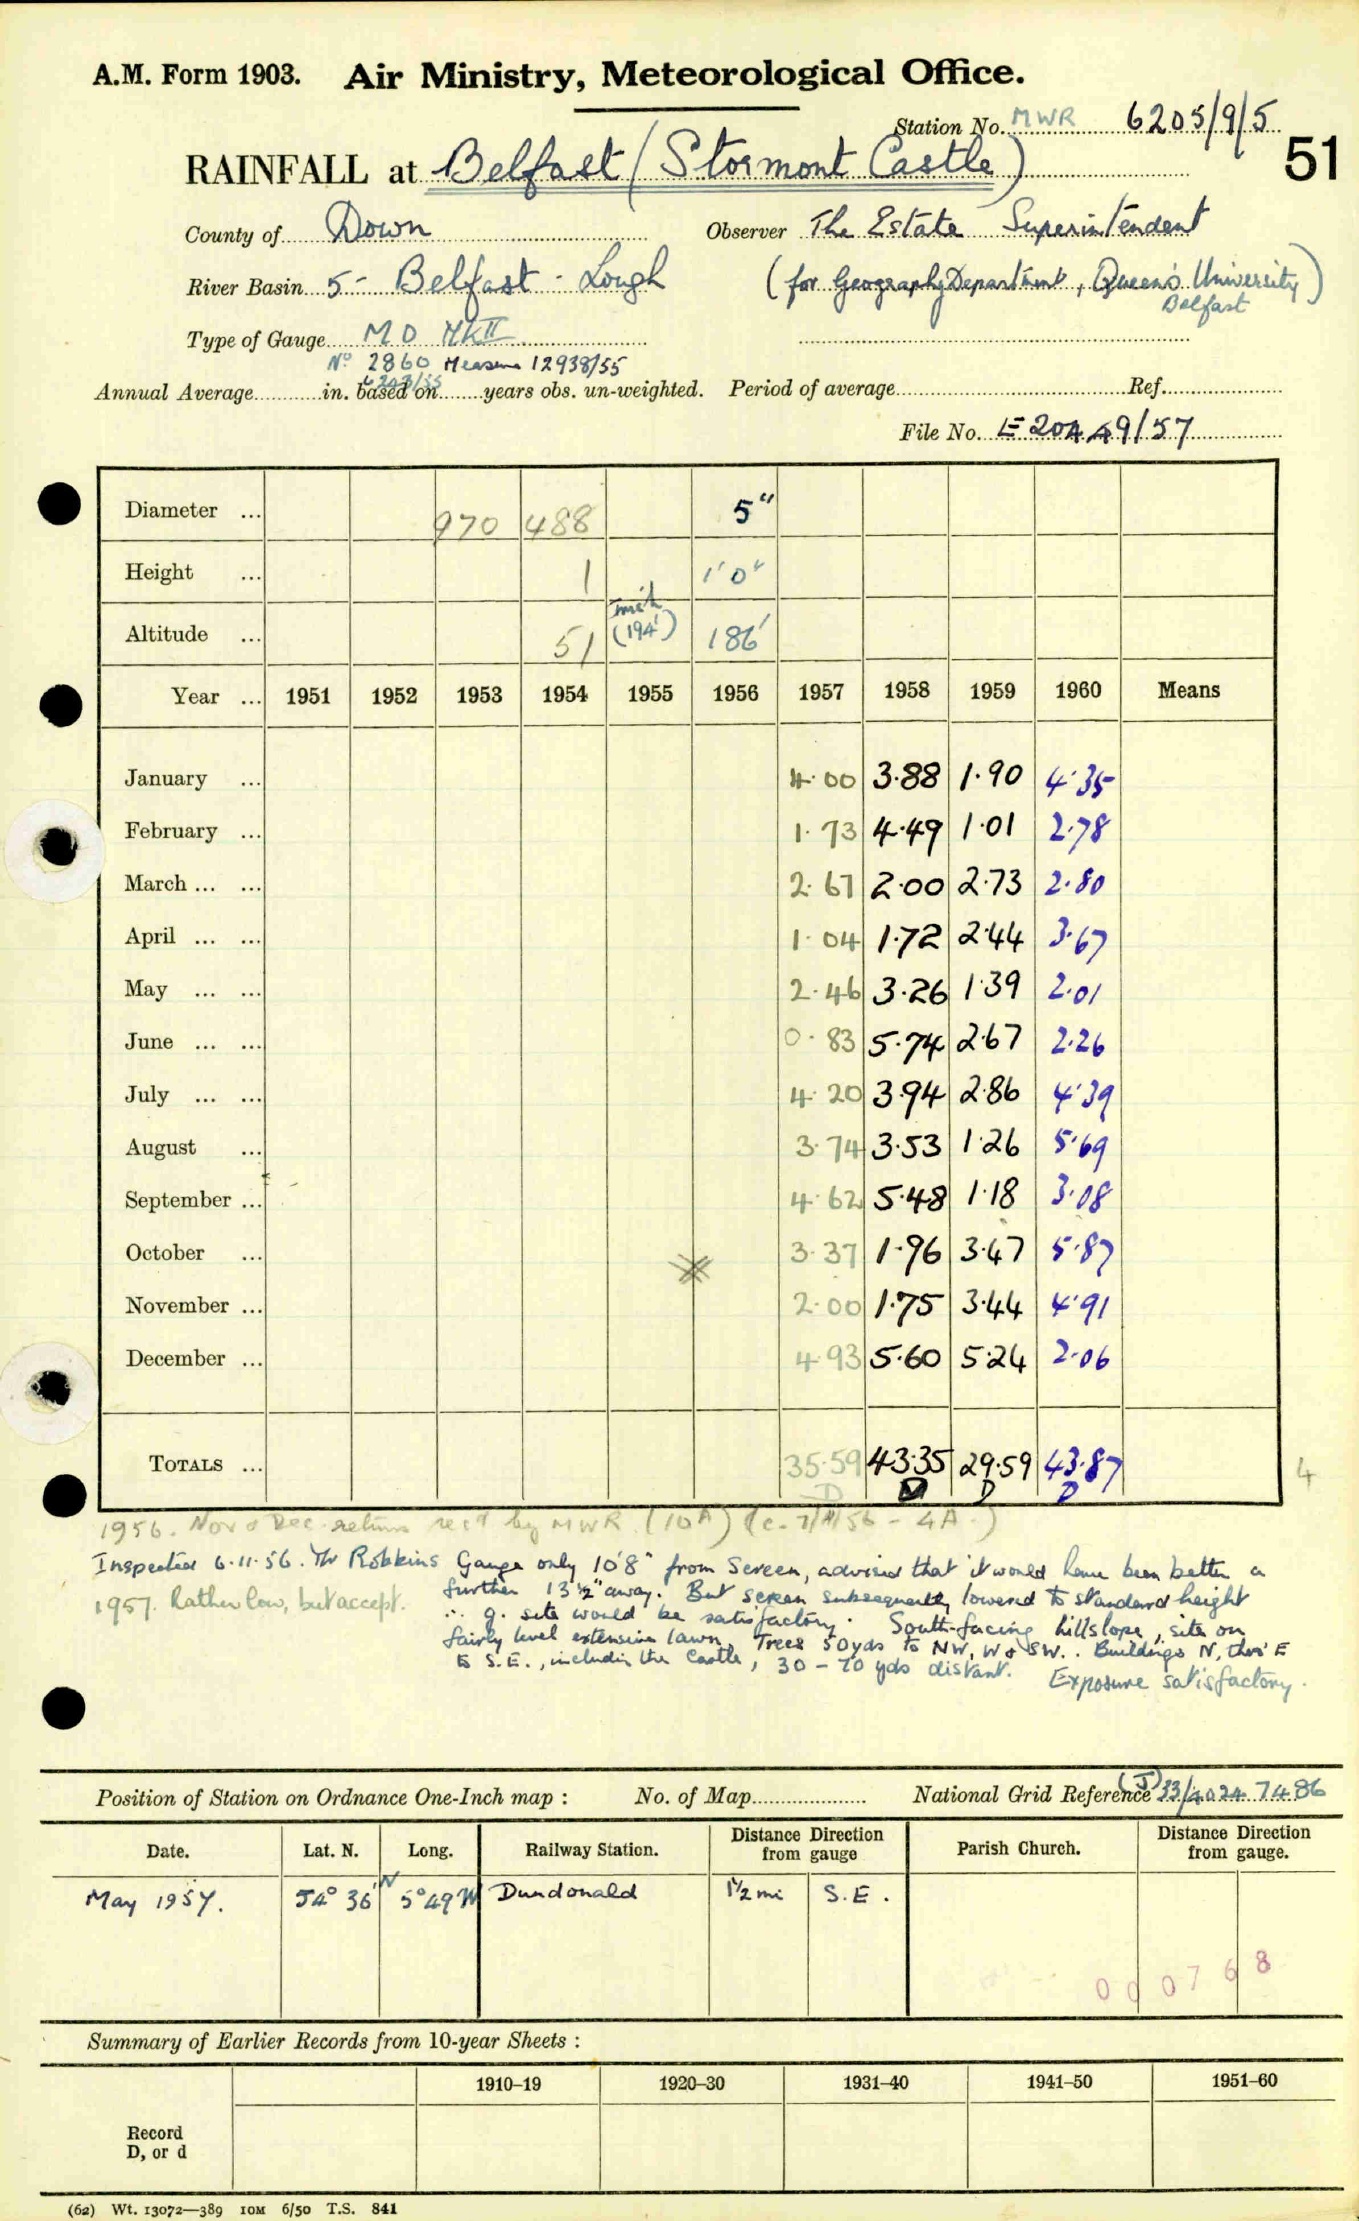 A.M. Form 1903. Air Ministry, Meteorological Office.
Station No. MWR 6205/9/5
51
RAINFALL at Belfast (Stormont Castle)
County of Down Observer The Estate Superintendent
River Basin 5 - Belfast - Lough (for Geography Department, Queen's University Belfast)
Type of Gauge M O MK II
No 2860 Measure 12938/55
Annual Average in. based on years obs. un-weighted. Period of average Ref.
File No. E20449/57
Diameter ... 970 488 5"
Height ... 1 1' 0"
Altitude ... 51 (194') 186'
Year ... 1951 1952 1953 1954 1955 1956 1957 1958 1959 1960 Means
January ... 4.00 3.88 1.90 4.35
February ... 1.73 4.49 1.01 2.78
March ... ... 2.67 2.00 2.73 2.80
April ... ... 1.04 1.72 2.44 3.67
May ... ... 2.46 3.26 1.39 2.01
June ... ... 0.83 5.74 2.67 2.26
July ... ... 4.20 3.94 2.86 4.39
August ... 3.74 3.53 1.26 5.69
September ... 4.62 5.48 1.18 3.08
October ... 3.37 1.96 3.47 5.87
November ... 2.00 1.75 3.44 4.91
December ... 4.93 5.60 5.24 2.06
TOTALS ... 35.59 43.35 29.59 43.87
D D D D
4
1956. Nov & Dec. returns rec'd by MWR (10A)
Inspected 6.11.56. Mr Robbins Gauge only 10'8" from Screen, advised that it would have been better a
1957. Rather low, but accept. further 13½" away. But screen subsequently lowered to standard height
∴ g. site would be satisfactory. South-facing hillslope, site on
fairly level extensive lawn. Trees 50yds to NW, W & SW. Buildings N, thro' E
to S.E., including the Castle, 30 - 70 yds distant. Exposure satisfactory.
Position of Station on Ordnance One-Inch map : No. of Map National Grid Reference (J) 33/4024 7486
Date. Lat. N. Long. Railway Station. Distance Direction from gauge Parish Church. Distance Direction from gauge.
May 1957. 54° 36' N 5° 49' W Dundonald 1½ mi S.E.
000768
Summary of Earlier Records from 10-year Sheets :
1910–19 1920–30 1931–40 1941–50 1951–60
Record
D, or d
(62) Wt. 13072—389 10M 6/50 T.S. 841